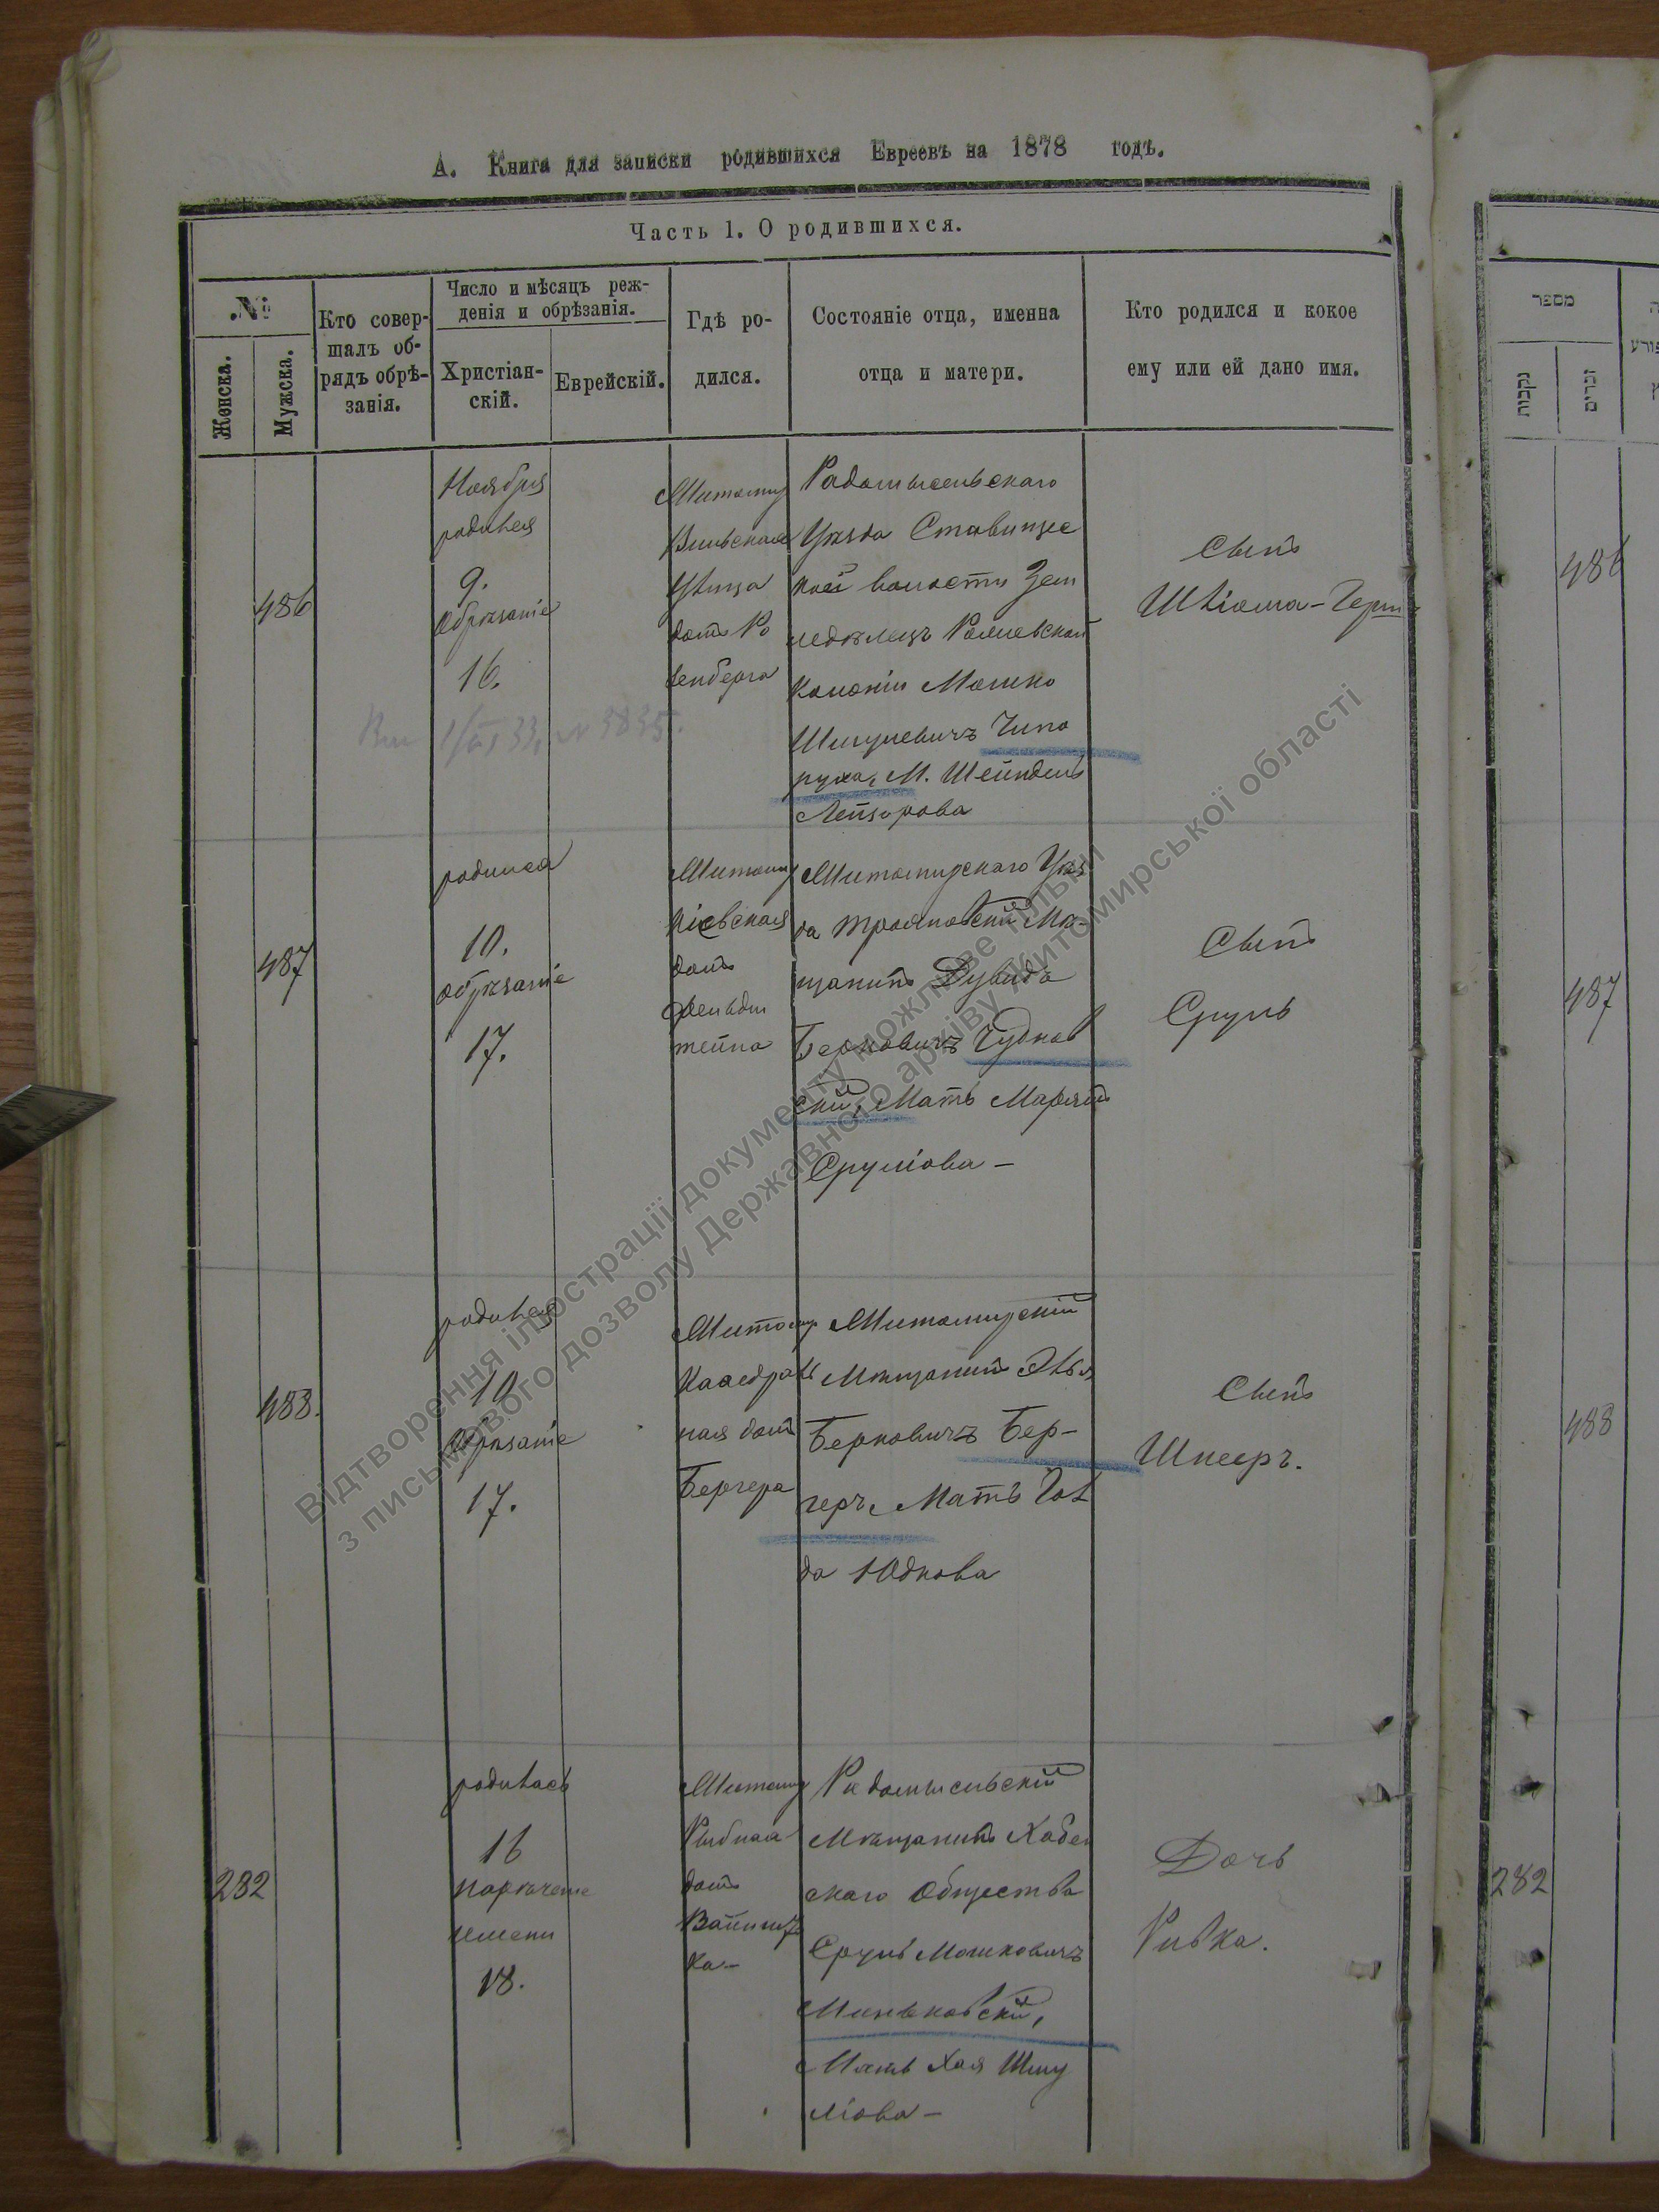 А. Книга для записки родившихся Евреевъ на 1878 годъ.
Часть 1. О родившихся.
№
Женска.
Мужска.
Кто совер-
шалъ об-
рядъ обрѣ-
занія.
Число и мѣсяцъ реж-
денія и обрѣзанія.
Христіан-
скій.
Еврейскій.
Гдѣ ро-
дился.
Состояніе отца, именна
отца и матери.
Кто родился и кокое
ему или ей дано имя.
486
Ноября
родился
9.
Обрѣзаніе
16.
Житомир
Вильская
Улица
домъ Ро
зенберга
Радомысельскаго
Уѣзда Ставищес
кой волости Зем
ледѣлецъ
колоніи Мошко
Шмулевичъ Чипа
руха, М. Шейндель
Лейзорова
Сынъ
Шліома-Герш
№ 3835.
487
родился
10.
обрѣзаніе
17.
Житомир
Кіевская
домъ
Фельдш
тейна
Житомирскаго Уѣз
да Трояновскій Мѣ-
щанинъ Дувидъ
Берковичъ Чуднов
скій, Мать Маріямъ
Сруліова –
Сынъ
Сруль
488.
родился
10
Обрѣзаніе
17.
Житомир
Каѳедраль
ная домъ
Бергера
Житомирскій
Мѣщанинъ Эль
Берковичъ Бер-
геръ, Мать Гол
да Юдкова
Сынъ
Шнееръ.
282
родилась
16
нареченіе
имени
18.
Житомир
Рыбная
домъ
Вайншт
ка –
Радомысельскій
Мѣщанинъ Хабен
скаго Общества
Сруль Мошковичъ
Миньковскій,
Мать Хая Шму
ліова –
Дочь
Ривка.
מספר
נקבות
זכרים
486
487
488
282
Відтворення ілюстрації документу можливе тільки
з письмового дозволу Державного архіву Житомирської області